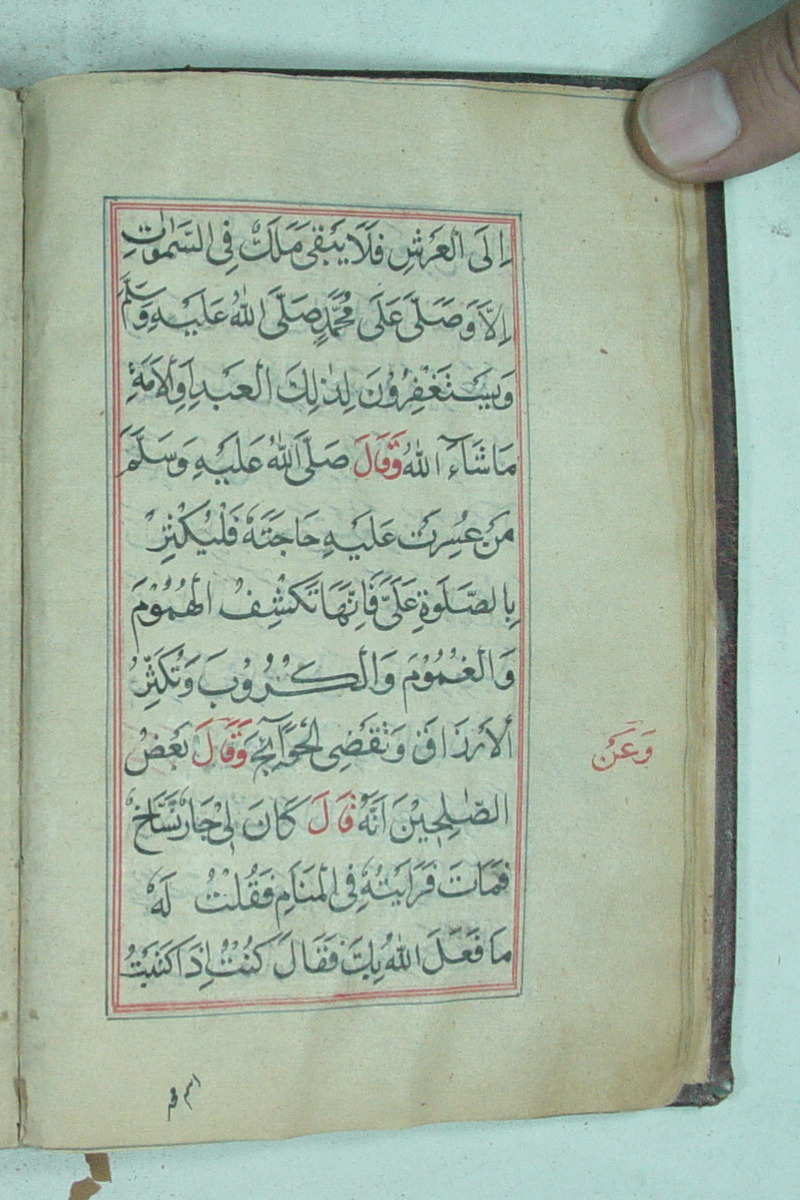 اِلَى الْعَرْشِ فَلَا يَبْقٰى مَلَكٌ فِى السَّمٰوَاتِ
اِلَّا وَصَلَّى عَلَى مُحَمَّدٍ صَلَّى اللهُ عَلَيْهِ وَسَلَّمَ
وَيَسْتَغْفِرُوْنَ لِذٰلِكَ الْعَبْدِ اَوِ الْاَمَةِ
مَا شَآءَ اللهُ وَقَالَ صَلَّى اللهُ عَلَيْهِ وَسَلَّمَ
مَنْ عَسُرَتْ عَلَيْهِ حَاجَتَهٗ فَلْيُكْثِرْ
بِالصَّلٰوةِ عَلَىَّ فَاِنَّهَا تَكْشِفُ الْهُمُوْمَ
وَالْغُمُوْمَ وَالْكُرُوْبَ وَتُكَثِّرُ
الْاَرْزَاقَ وَتَقْضِى الْحَوَآئِجَ وَقَالَ بَعْضُ
وَعَنْ
الصّٰلِحِيْنَ اَنَّهٗ قَالَ كَانَ لِىْ جَارٌ نَسَّاخٌ
فَمَاتَ فَرَاَيْتُهٗ فِى الْمَنَامِ فَقُلْتُ لَهٗ
مَا فَعَلَ اللهُ بِكَ فَقَالَ كُنْتُ اِذَا كَتَبْتُ
اسم محمد